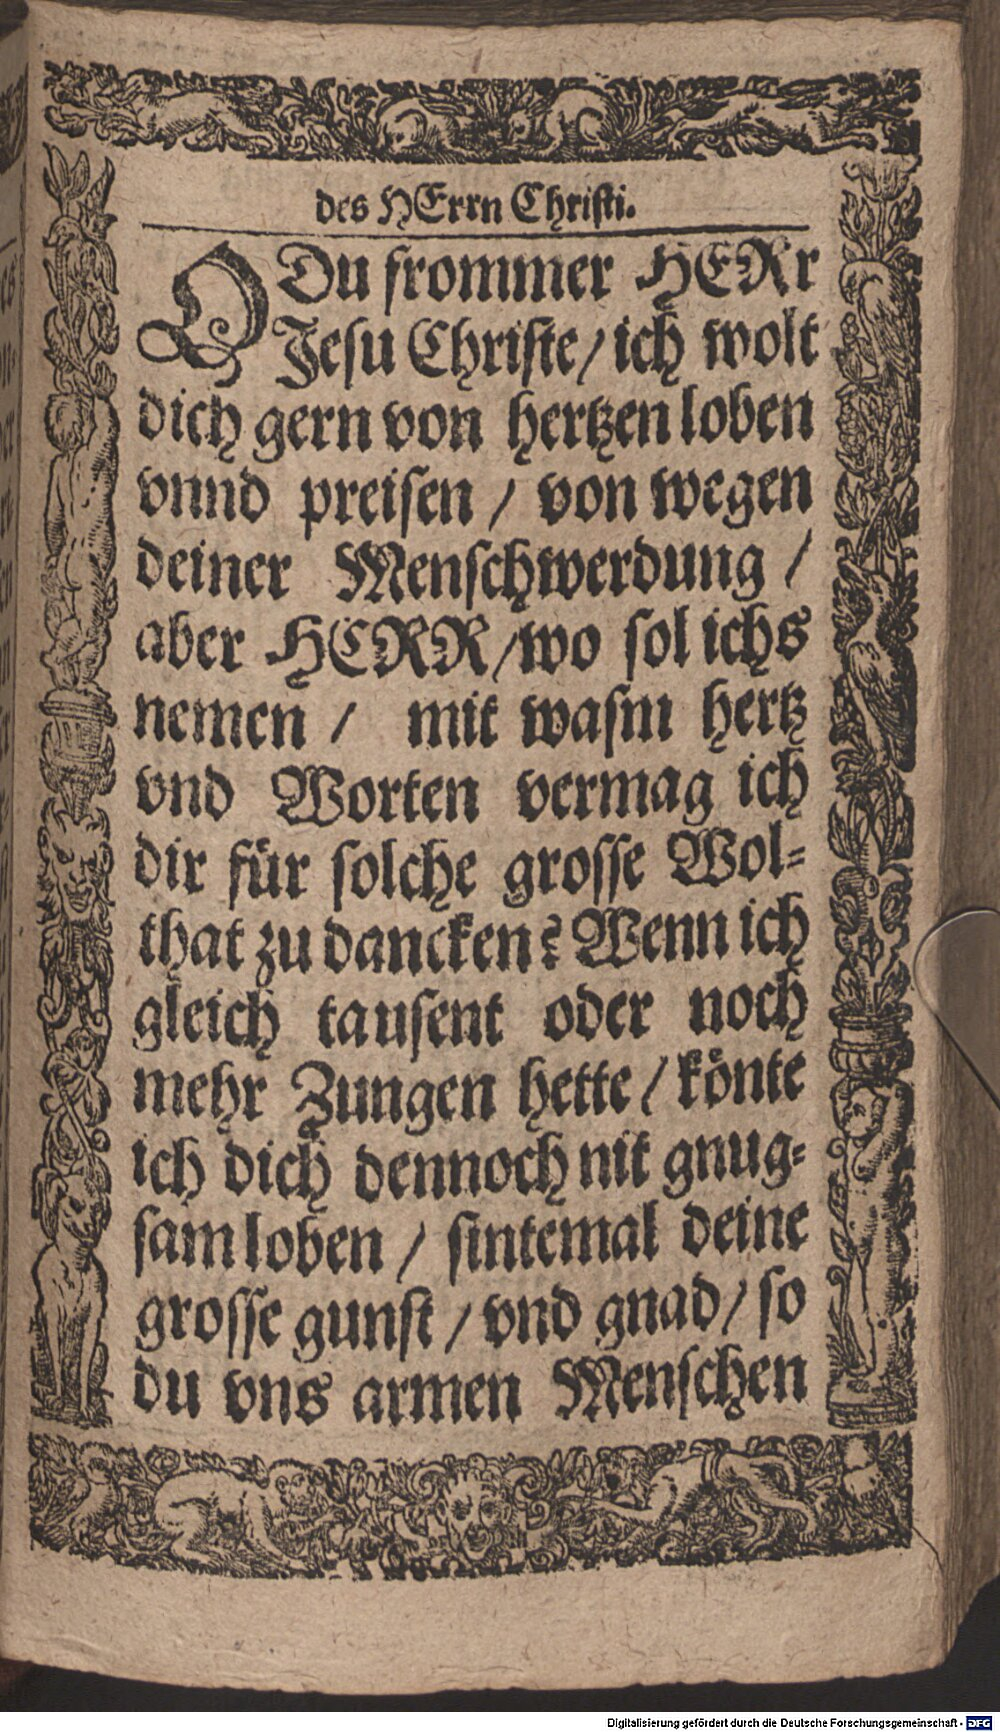 des HErrn Christi.
O Du frommer HERr
Jesu Christe / ich wolt
dich gern von hertzen loben
vnnd preisen / von wegen
deiner Menschwerdung /
aber HERR / wo sol ichs
nemen / mit wasm hertz
vnd Worten vermag ich
dir für solche grosse Wol=
that zu dancken? Wenn ich
gleich tausent oder noch
mehr Zungen hette / könte
ich dich dennoch nit gnug=
sam loben / sintemal deine
grosse gunst / vnd gnad / so
du vns armen Menschen
Digitalisierung gefördert durch die Deutsche Forschungsgemeinschaft - DFG